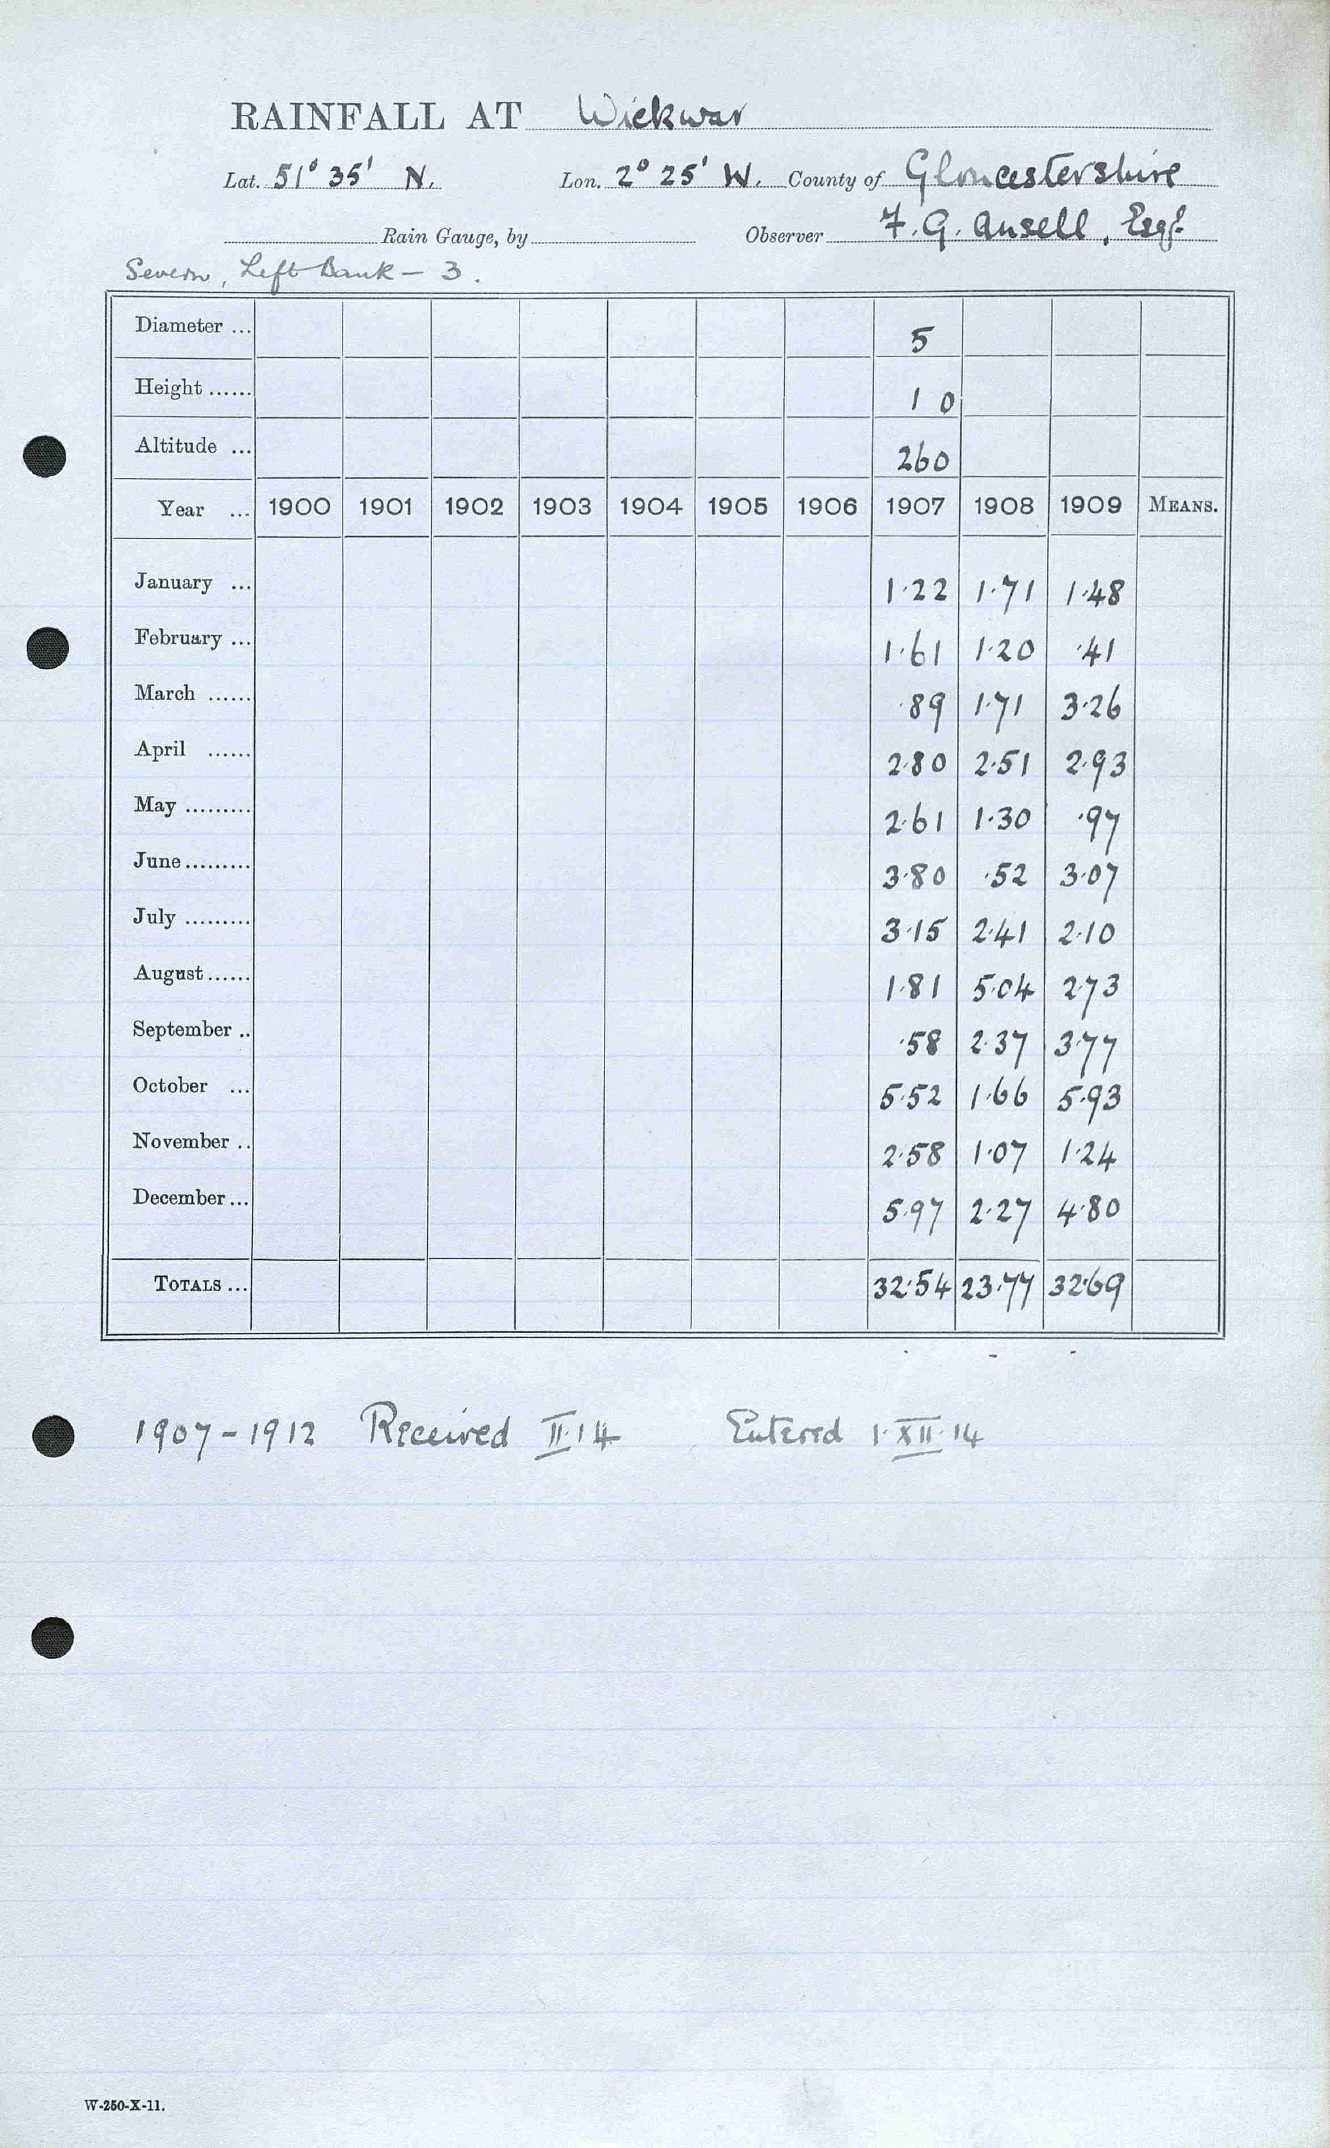 RAINFALL AT Wickwar
Lat. 51° 35' N. Lon. 2° 25' W. County of Gloucestershire
Rain Gauge, by Observer F. G. Ansell, Esq.
Severn, Left Bank – 3.
Diameter ... 5
Height ...... 1 0
Altitude ... 260
Year ... 1900 1901 1902 1903 1904 1905 1906 1907 1908 1909 MEANS.
January ... 1·22 1·71 1·48
February ... 1·61 1·20 ·41
March ...... ·89 1·71 3·26
April ...... 2·80 2·51 2·93
May ......... 2·61 1·30 ·97
June ......... 3·80 ·52 3·07
July ......... 3·15 2·41 2·10
August ...... 1·81 5·04 2·73
September .. ·58 2·37 3·77
October ... 5·52 1·66 5·93
November .. 2·58 1·07 1·24
December ... 5·97 2·27 4·80
TOTALS ... 32·54 23·77 32·69
1907 – 1912 Received II·14 Entered 1·XII·14
W-250-X-11.